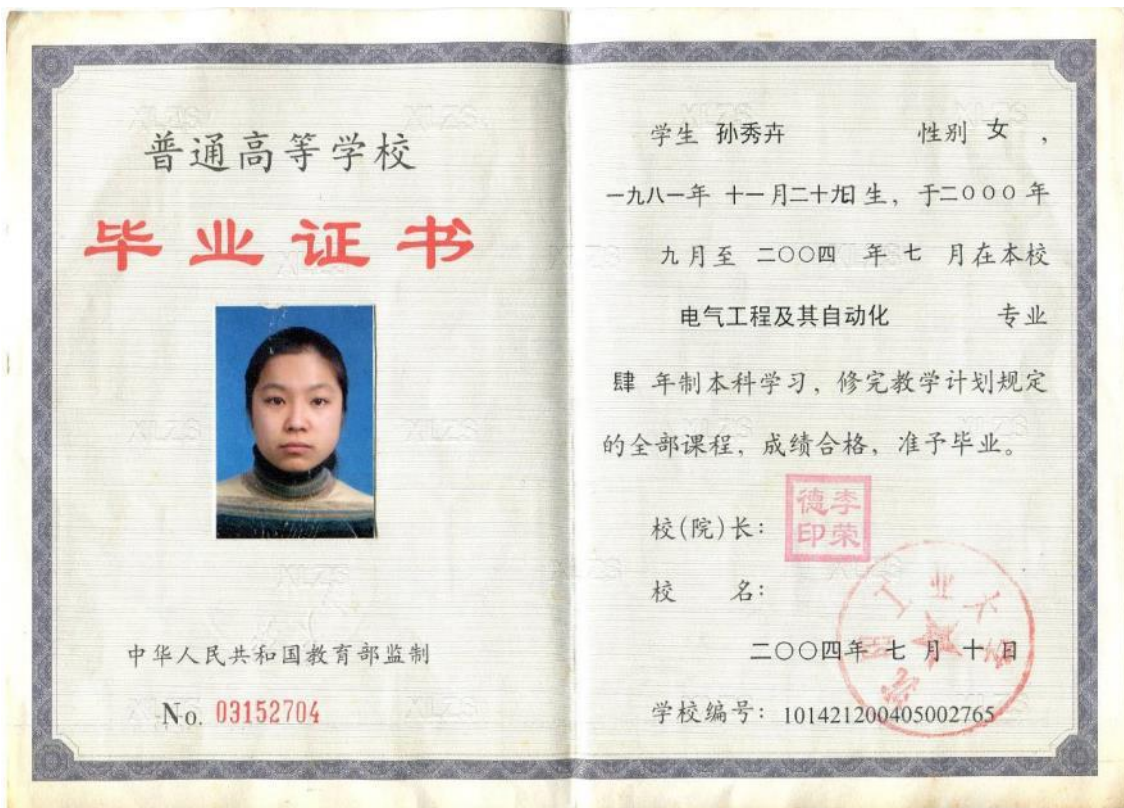 普通高等学校
毕业证书
中华人民共和国教育部监制
No. 03152704
学生 孙秀卉 性别 女，
一九八一年 十一月二十九日生，于二〇〇〇年
九月至 二〇〇四 年 七 月在本校
电气工程及其自动化 专业
肆 年制本科学习，修完教学计划规定
的全部课程，成绩合格，准予毕业。
校(院)长：
李荣德印
校 名：
工业大
二〇〇四年 七 月 十 日
学校编号：101421200405002765